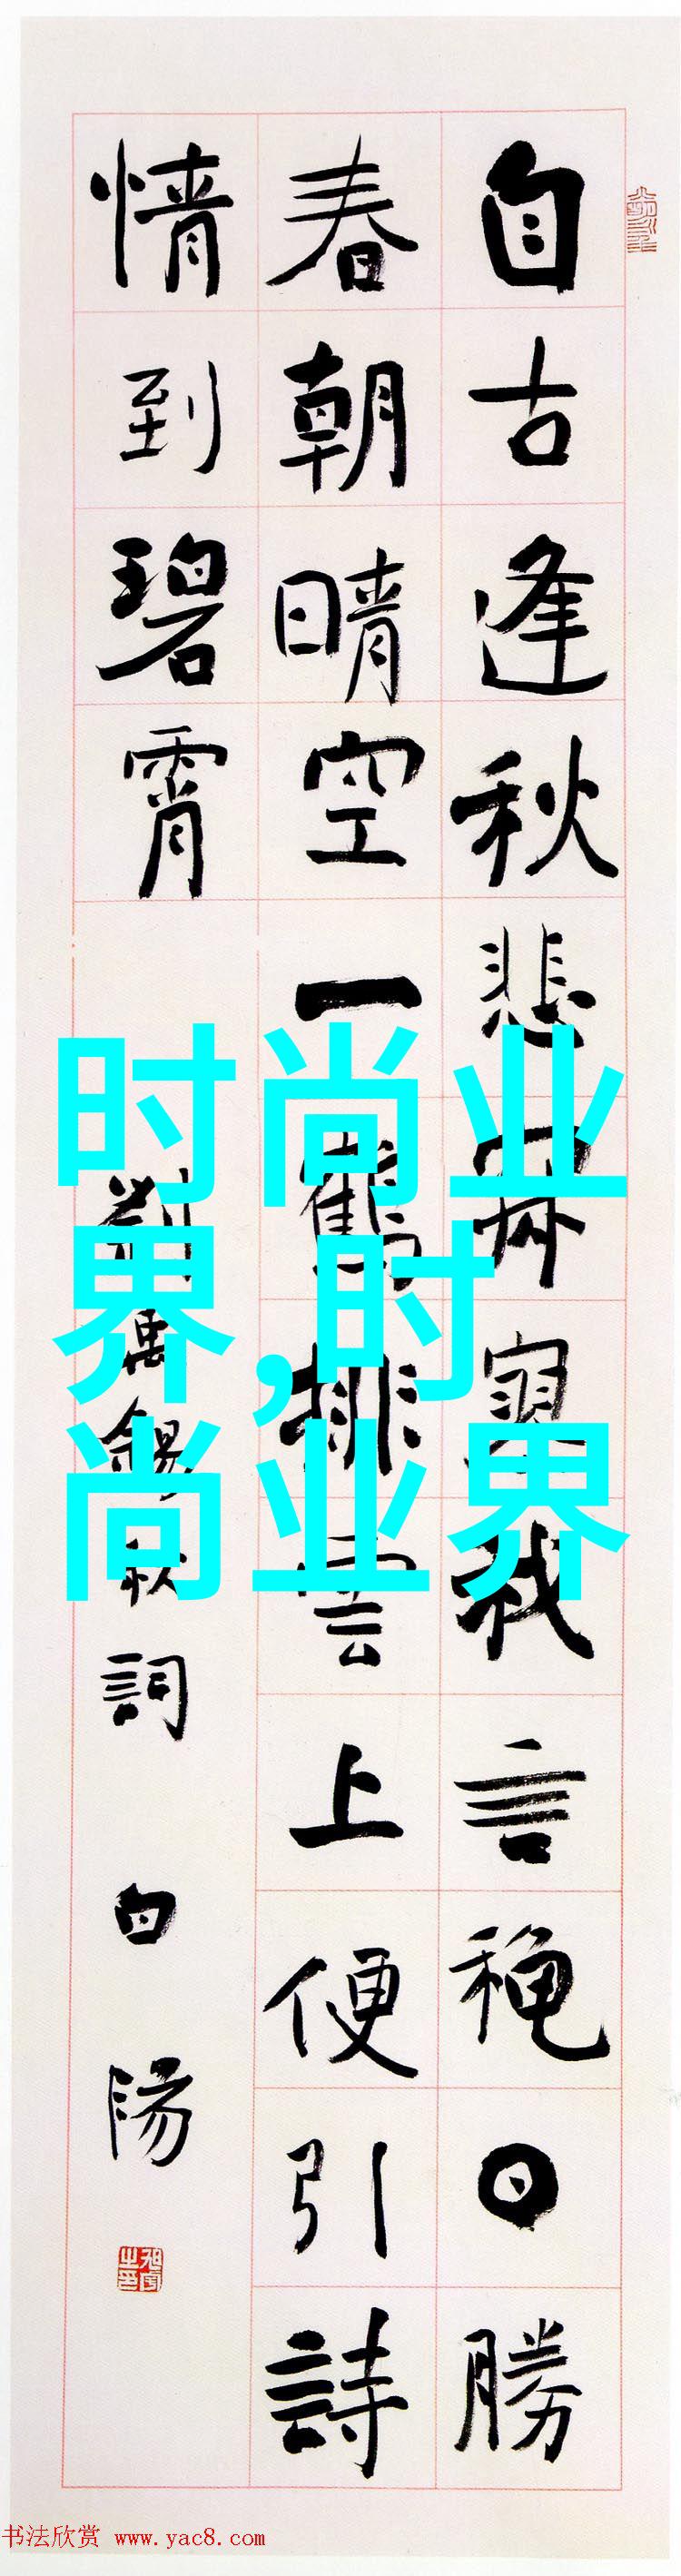 自古逢秋悲寂寥我言穐日勝
春朝晴空一鶴排雲上便引詩
情到碧霄
劉禹錫秋詞 白陽
时尚业
界,时
尚业界
书法欣赏 www.yac8.com